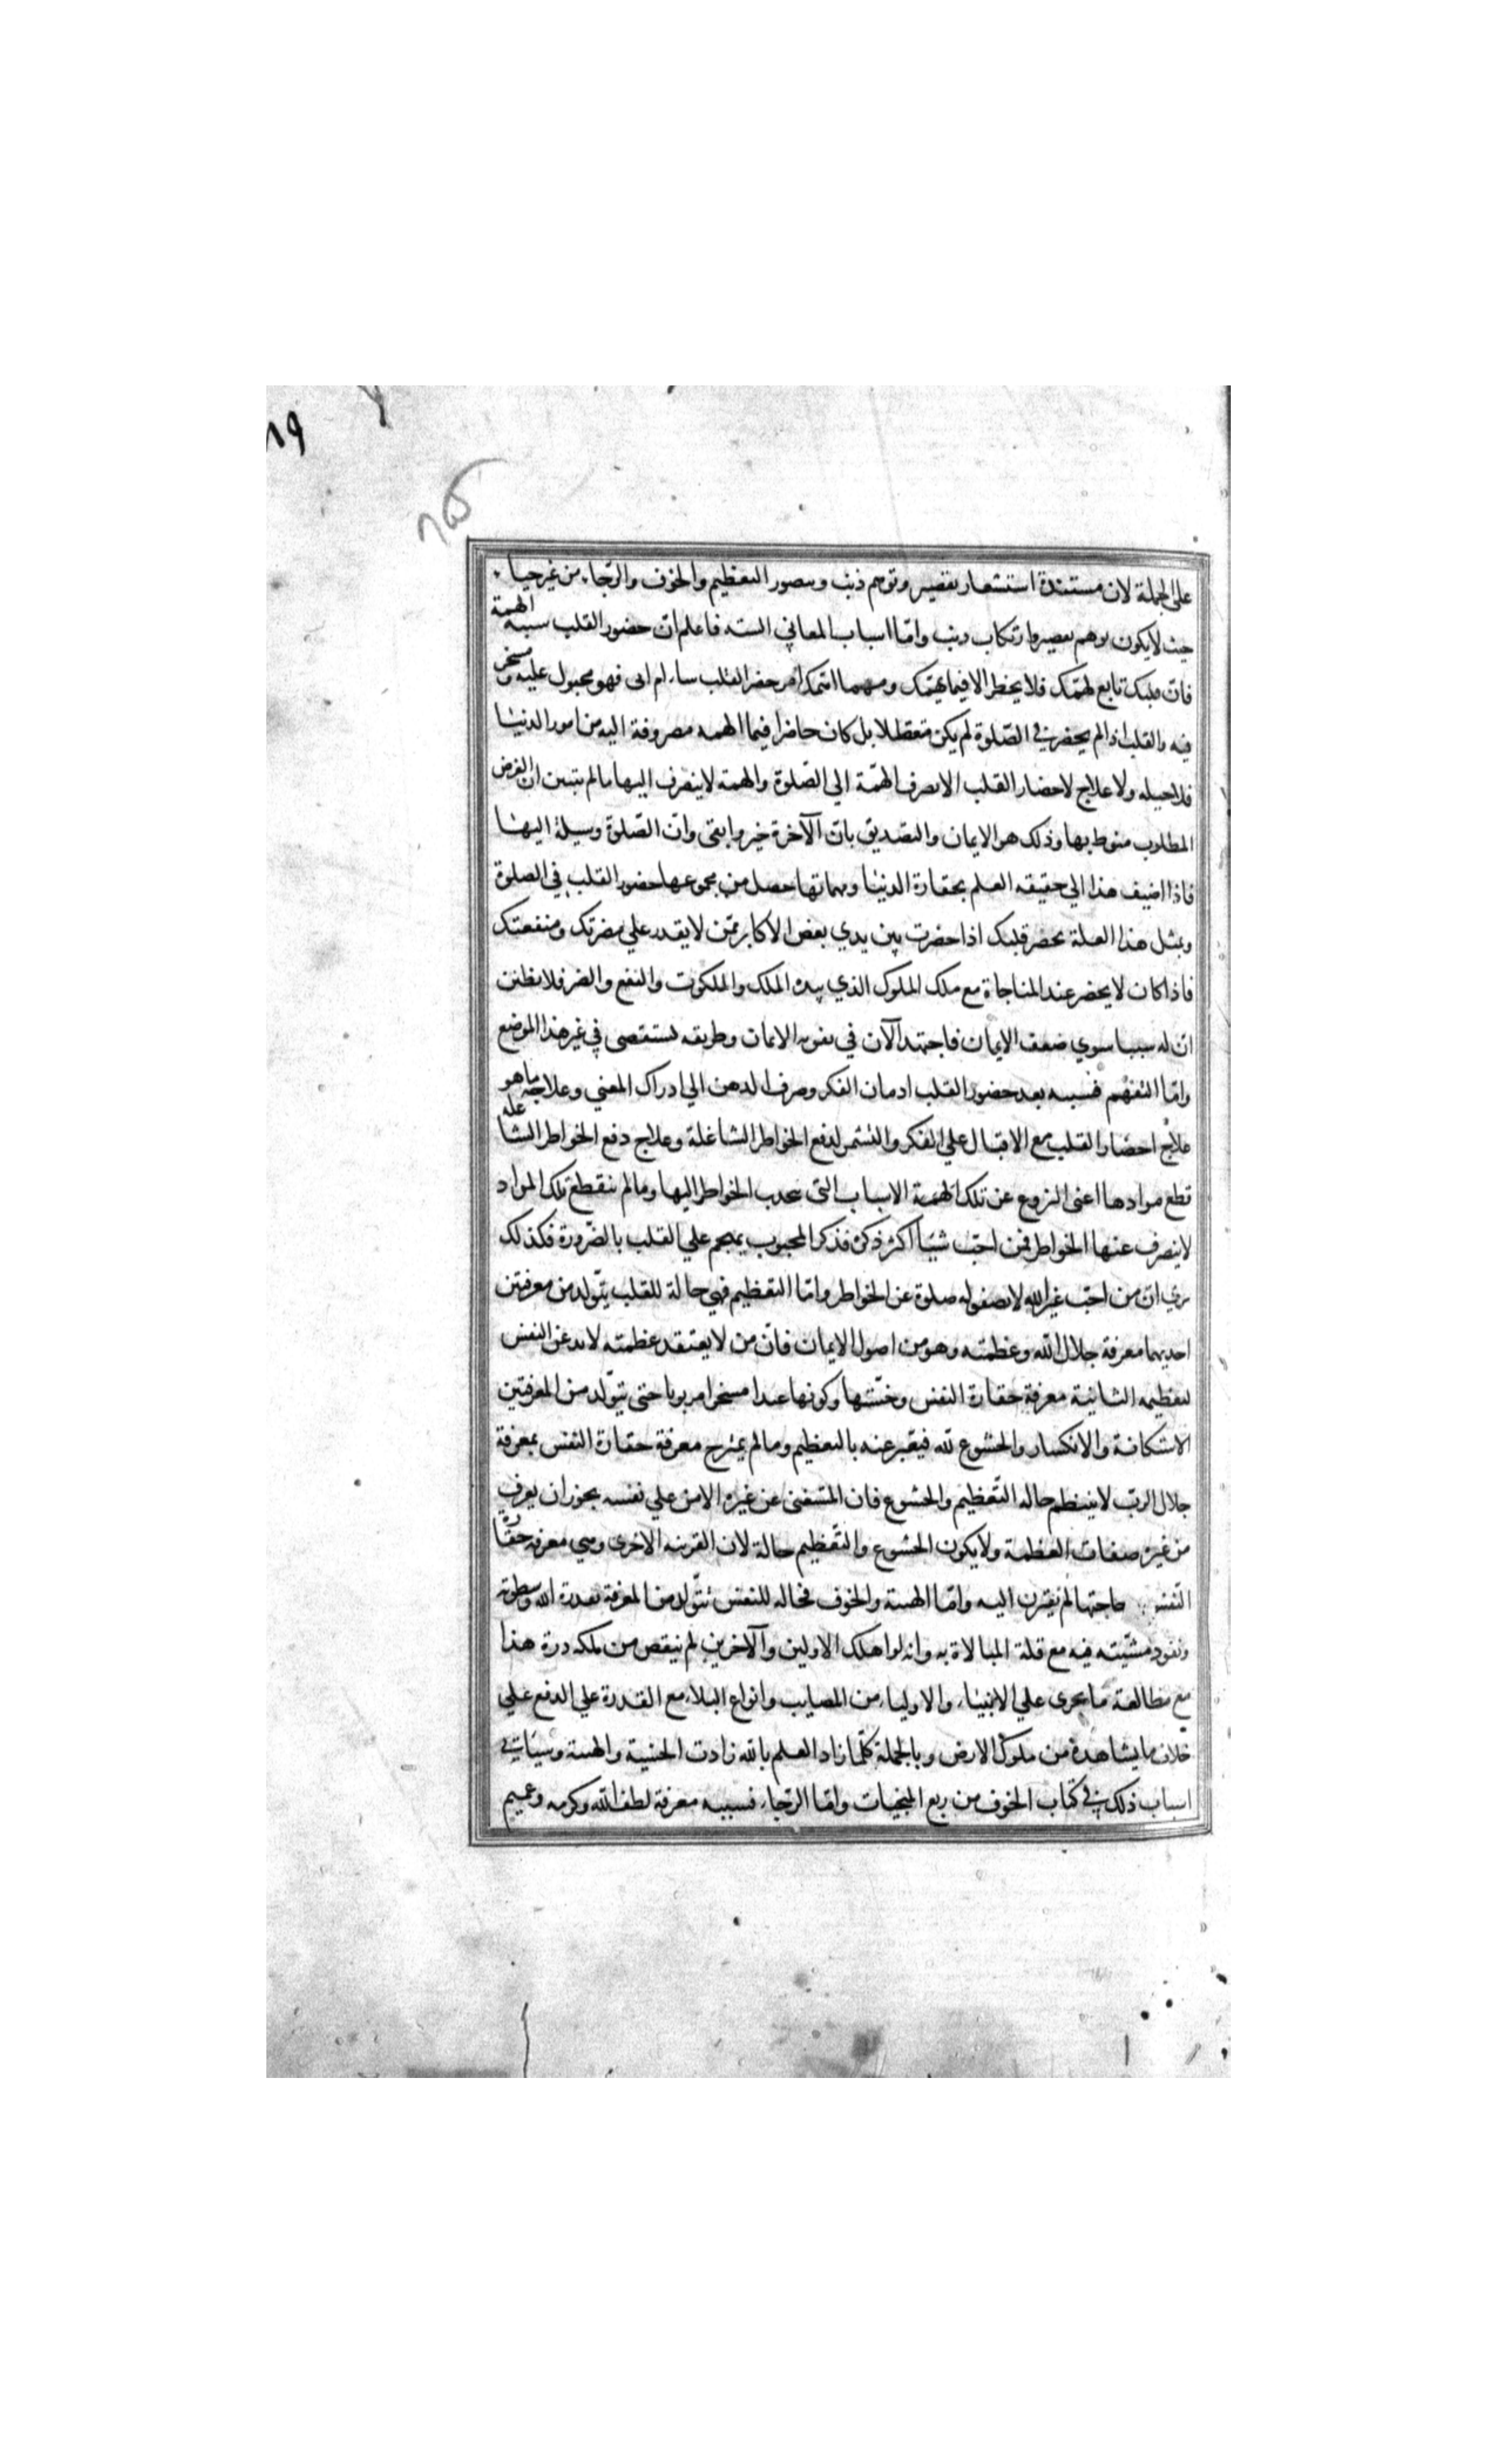 ٨٩
على الجملة لان مستندة استشعار تقصير وتوهم ذنب وتصور التعظيم والخوف والرجاء من غير حياء
حيث لا يكون توهم تقصير وارتكاب ذنب وامّا اسباب المعاني الستة فاعلم انّ حضور القلب سببه الهمة
فانّ قلبك تابع لهمّتك فلا يحضر الا فيما يهمّك ومهما اهمّك امر حضر القلب شاء ام ابى فهو مجبول عليه ومسخر
فيه والقلب اذا لم يحضر في الصّلوة لم يكن متعطلا بل كان حاضرا فيما الهمة مصروفة اليه من امور الدنيا
فلا حيلة ولا علاج لاحضار القلب الا بصرف الهمّة الي الصّلوة والهمة لا ينصرف اليها ما لم يتبين ان الغرض
المطلوب منوط بها وذلك هو الايمان والتصديق بانّ الآخرة خير وابقى وانّ الصّلوة وسيلة اليها
فاذا اضيف هذا الي حقيقة العلم بحقارة الدنيا ومهماتها حصل من مجموعها حضور القلب في الصلوة
وبمثل هذا العلة يحضر قلبك اذا حضرت بين يدي بعض الاكابر ممّن لا يقدر علي مضرتك ومنفعتك
فاذا كان لا يحضر عند المناجاة مع ملك الملوك الذي بيده الملك والملكوت والنفع والضر فلا تظنن
انّ له سببا سوي ضعف الايمان فاجتهد الآن في تقوية الايمان وطريقه يستقصى في غير هذا الموضع
وامّا التفهّم فسببه بعد حضور القلب ادمان الفكر وصرف الذهن الي ادراك المعني وعلاجه ما هو
علاج احضار القلب مع الاقبال علي الفكر والتشمر لدفع الخواطر الشاغلة وعلاج دفع الخواطر الشاغلة
قطع موادها اعنى النزوع عن تلك الهمة الاسباب التى تجذب الخواطر اليها وما لم ينقطع تلك المواد
لا ينصرف عنها الخواطر فمن احبّ شيئا اكثر ذكره فذكر المحبوب يهجم علي القلب بالضّرورة فكذلك
ترى انّ من احبّ غير الله لا تصفو له صلوة عن الخواطر وامّا التعظيم فهي حالة للقلب يتّولد من معرفتين
احديهما معرفة جلال اللّه وعظمته وهو من اصول الايمان فانّ من لا يعتقد عظمته لا تذعن النفس
لتعظيمه الثانية معرفة حقارة النفس وخسّتها وكونها عبدا مسخرا مربوبا حتى يتّولد من المعرفتين
الاستكانة والانكسار والخشوع للّه فيعّبر عنه بالتعظيم وما لم يمتزج معرفة حقارة النفس بمعرفة
جلال الربّ لا ينتظم حالة التّعظيم والخشوع فان المستغنى عن غيره الامن علي نفسه يجوز ان يعرف
من غيره صفات العظمة ولا يكون الخشوع والتّعظيم حالة لان القرينة الاخرى وهي معرفة حقارة
النّفس حاجتها لم تقترن اليه وامّا الهيبة والخوف فحالة للنفس يتّولد من المعرفة بقدرة الله وسطوته
ونفوذ مشّيته فيه مع قلة المبالاة به وانه لو اهلك الاولين والآخرين لم ينقص من ملكه ذرة هذا
مع مطالعة ما يجرى علي الانبياء والاولياء من المصايب وانواع البلاء مع القدرة علي الدفع علي
خلاف ما يشاهدة من ملوك الارض وبالجملة كلّما زاد العلم باللّه زادت الخشية والهيبة وسيأتي
اسباب ذلك في كتاب الخوف من ربع المنجيات وامّا الرّجاء فسببه معرفة لطف اللّه وكرمه وعميم